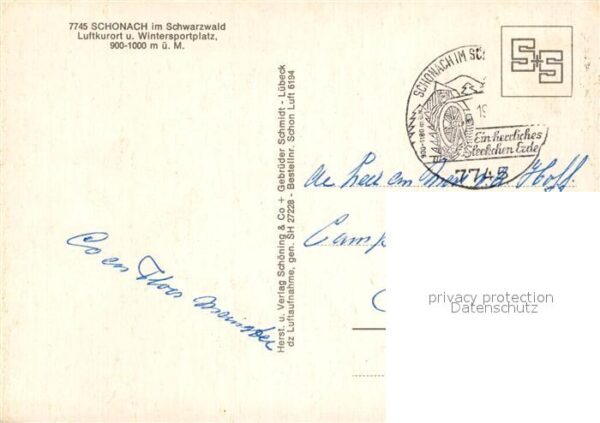 7745 SCHONACH im Schwarzwald
Luftkurort u. Wintersportplatz,
900-1000 m ü. M.
Herst. u. Verlag Schöning & Co + Gebrüder Schmidt - Lübeck
dz Luftaufnahme, gen. SH 27228 - Bestellnr. Schon Luft 6194
S+S
SCHONACH IM SC
19
Ein herrliches
Fleckchen Erde
7745
de Heer en Mevr v.d. Hoff
Camp
Co en
privacy protection
Datenschutz